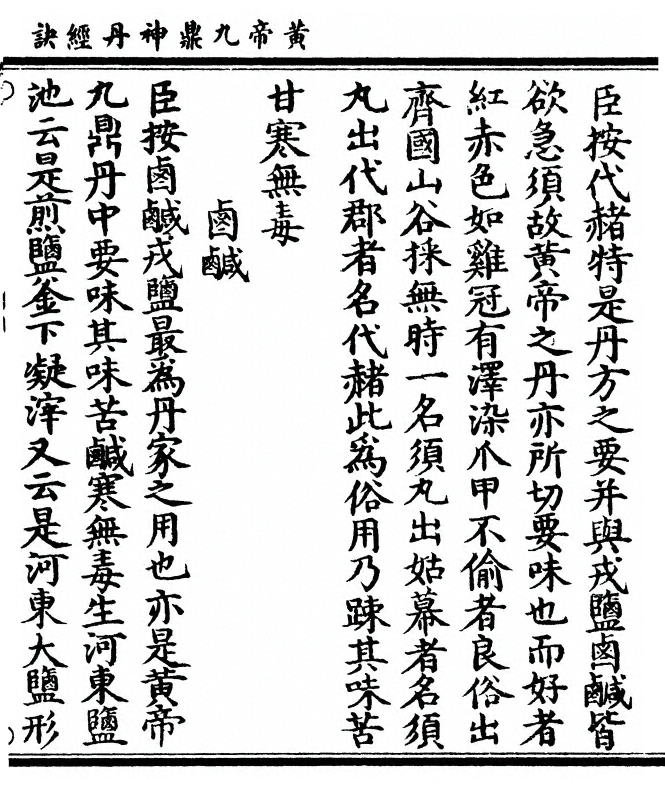 黃帝九鼎神丹經訣
臣按代赭特是丹方之要并與戎鹽鹵鹹皆
欲急須故黃帝之丹亦所切要味也而好者
紅赤色如雞冠有澤染爪甲不偷者良俗出
齊國山谷採無時一名須丸出姑幕者名須
丸出代郡者名代赭此爲俗用乃踈其味苦
甘寒無毒
鹵鹹
臣按鹵鹹戎鹽最爲丹家之用也亦是黃帝
九鼎丹中要味其味苦鹹寒無毒生河東鹽
池云是煎鹽釜下凝滓又云是河東大鹽形